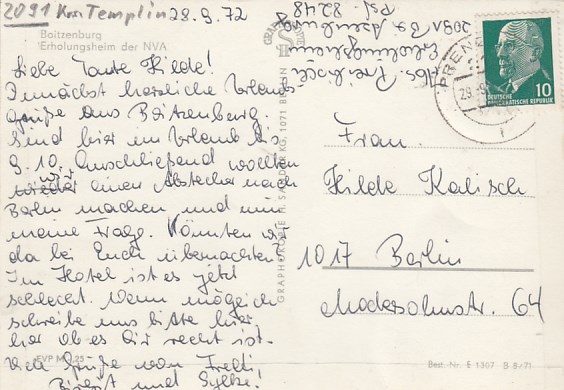 2091 Krs. Templin 28.9.72
Boitzenburg
Erholungsheim der NVA
Liebe Tante Hilde!
Zunächst herzliche Urlaubs-
grüße aus Boitzenburg.
Sind hier im Urlaub bis
9.10. Anschließend wollten
wir einen Abstecher nach
Berlin machen und nun
meine Frage. Könnten wir
da bei Euch übernachten?
Im Hotel ist es jetzt
schlecht. Wenn möglich
schreibe uns bitte hier
her ob es Dir recht ist.
Viele Grüße von Fredi
Birgit und Sylke!
EVP M 0,25
Erholungsheim
2091 Boitzenburg
Psf. 8248
GRAPHOKOPIE H. SANDER KG, 1071 BERLIN
PRENZ
DEUTSCHE
DEMOKRATISCHE REPUBLIK
10
Frau
Hilde Kalisch
1017 Berlin
Modersohnstr. 64
Best. Nr. E 1307 B 8/71